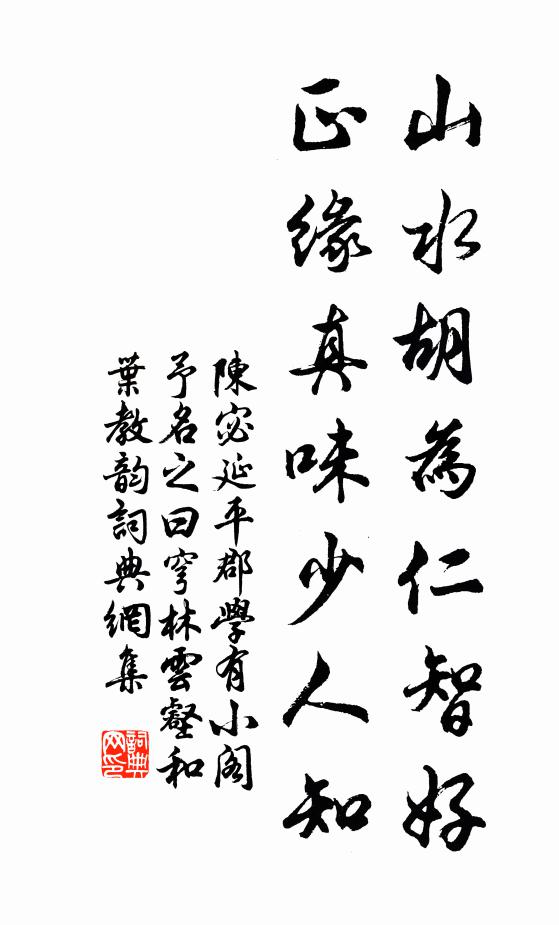 山水胡為仁智好
正緣真味少人知
陳宓延平郡學有小閣
予名之曰穹林雲壑和
葉教韵詞典網集
詞典
网印